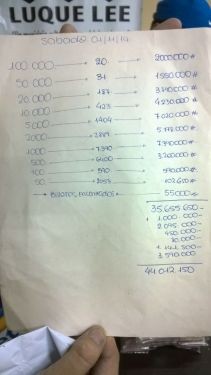 LUQUE LEE
Sabado 01/11/14
100 000 → 20 → 2000000#
50 000 → 31 → 1550.000#
20.000 → 187 → 3740 000#
10 000 → 423 → 4230.000#
5 000 → 1404 → 7.020 000#
2000 → 2889 → 5.778 000#
1000 → 7390 → 7390 000#
500 → 6400 → 3.200 000#
→ 55000
35.655.650-
1.000.000-
2.095.000-
450.000-
20.000-
3.590.000
44.012.150